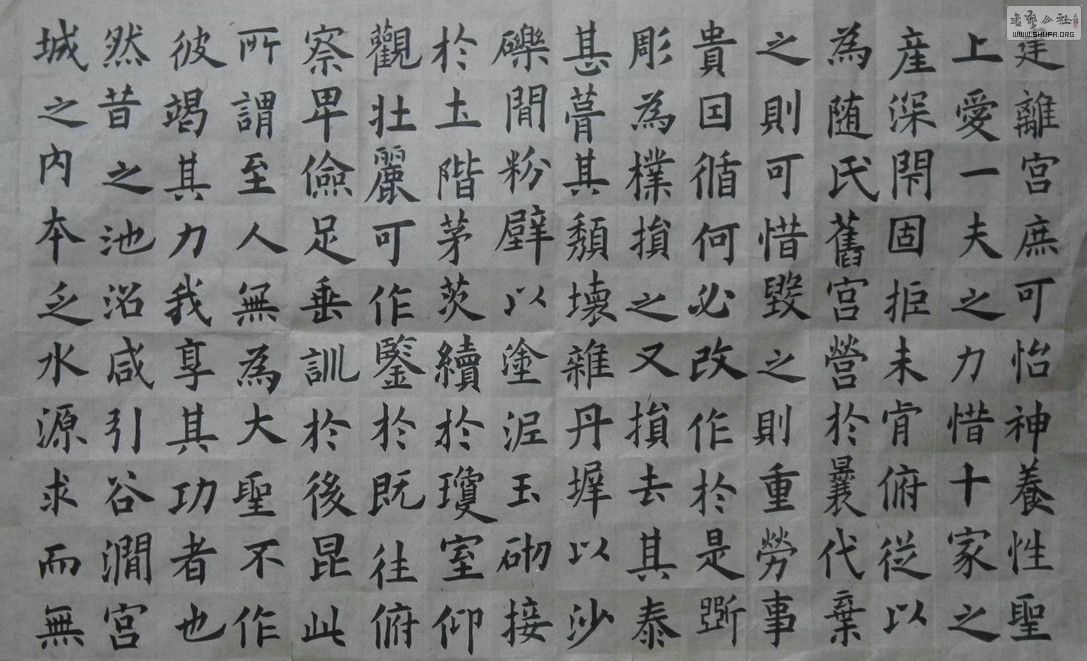 建離宮庶可怡神養性聖
上愛一夫之力惜十家之
産深閇固拒未肯俯從以
為随氏舊宮營於曩代棄
之則可惜毀之則重勞事
貴因循何必改作於是斲
彫為樸損之又損去其泰
甚葺其頹壞雜丹墀以沙
礫間粉壁以塗泥玉砌接
於土階茅茨續於瓊室仰
觀壯麗可作鑒於既往俯
察卑儉足垂訓於後昆此
所謂至人無為大聖不作
彼竭其力我享其功者也
然昔之池沼咸引谷澗宮
城之內本乏水源求而無
書藝公社
WWW.SHUFA.ORG